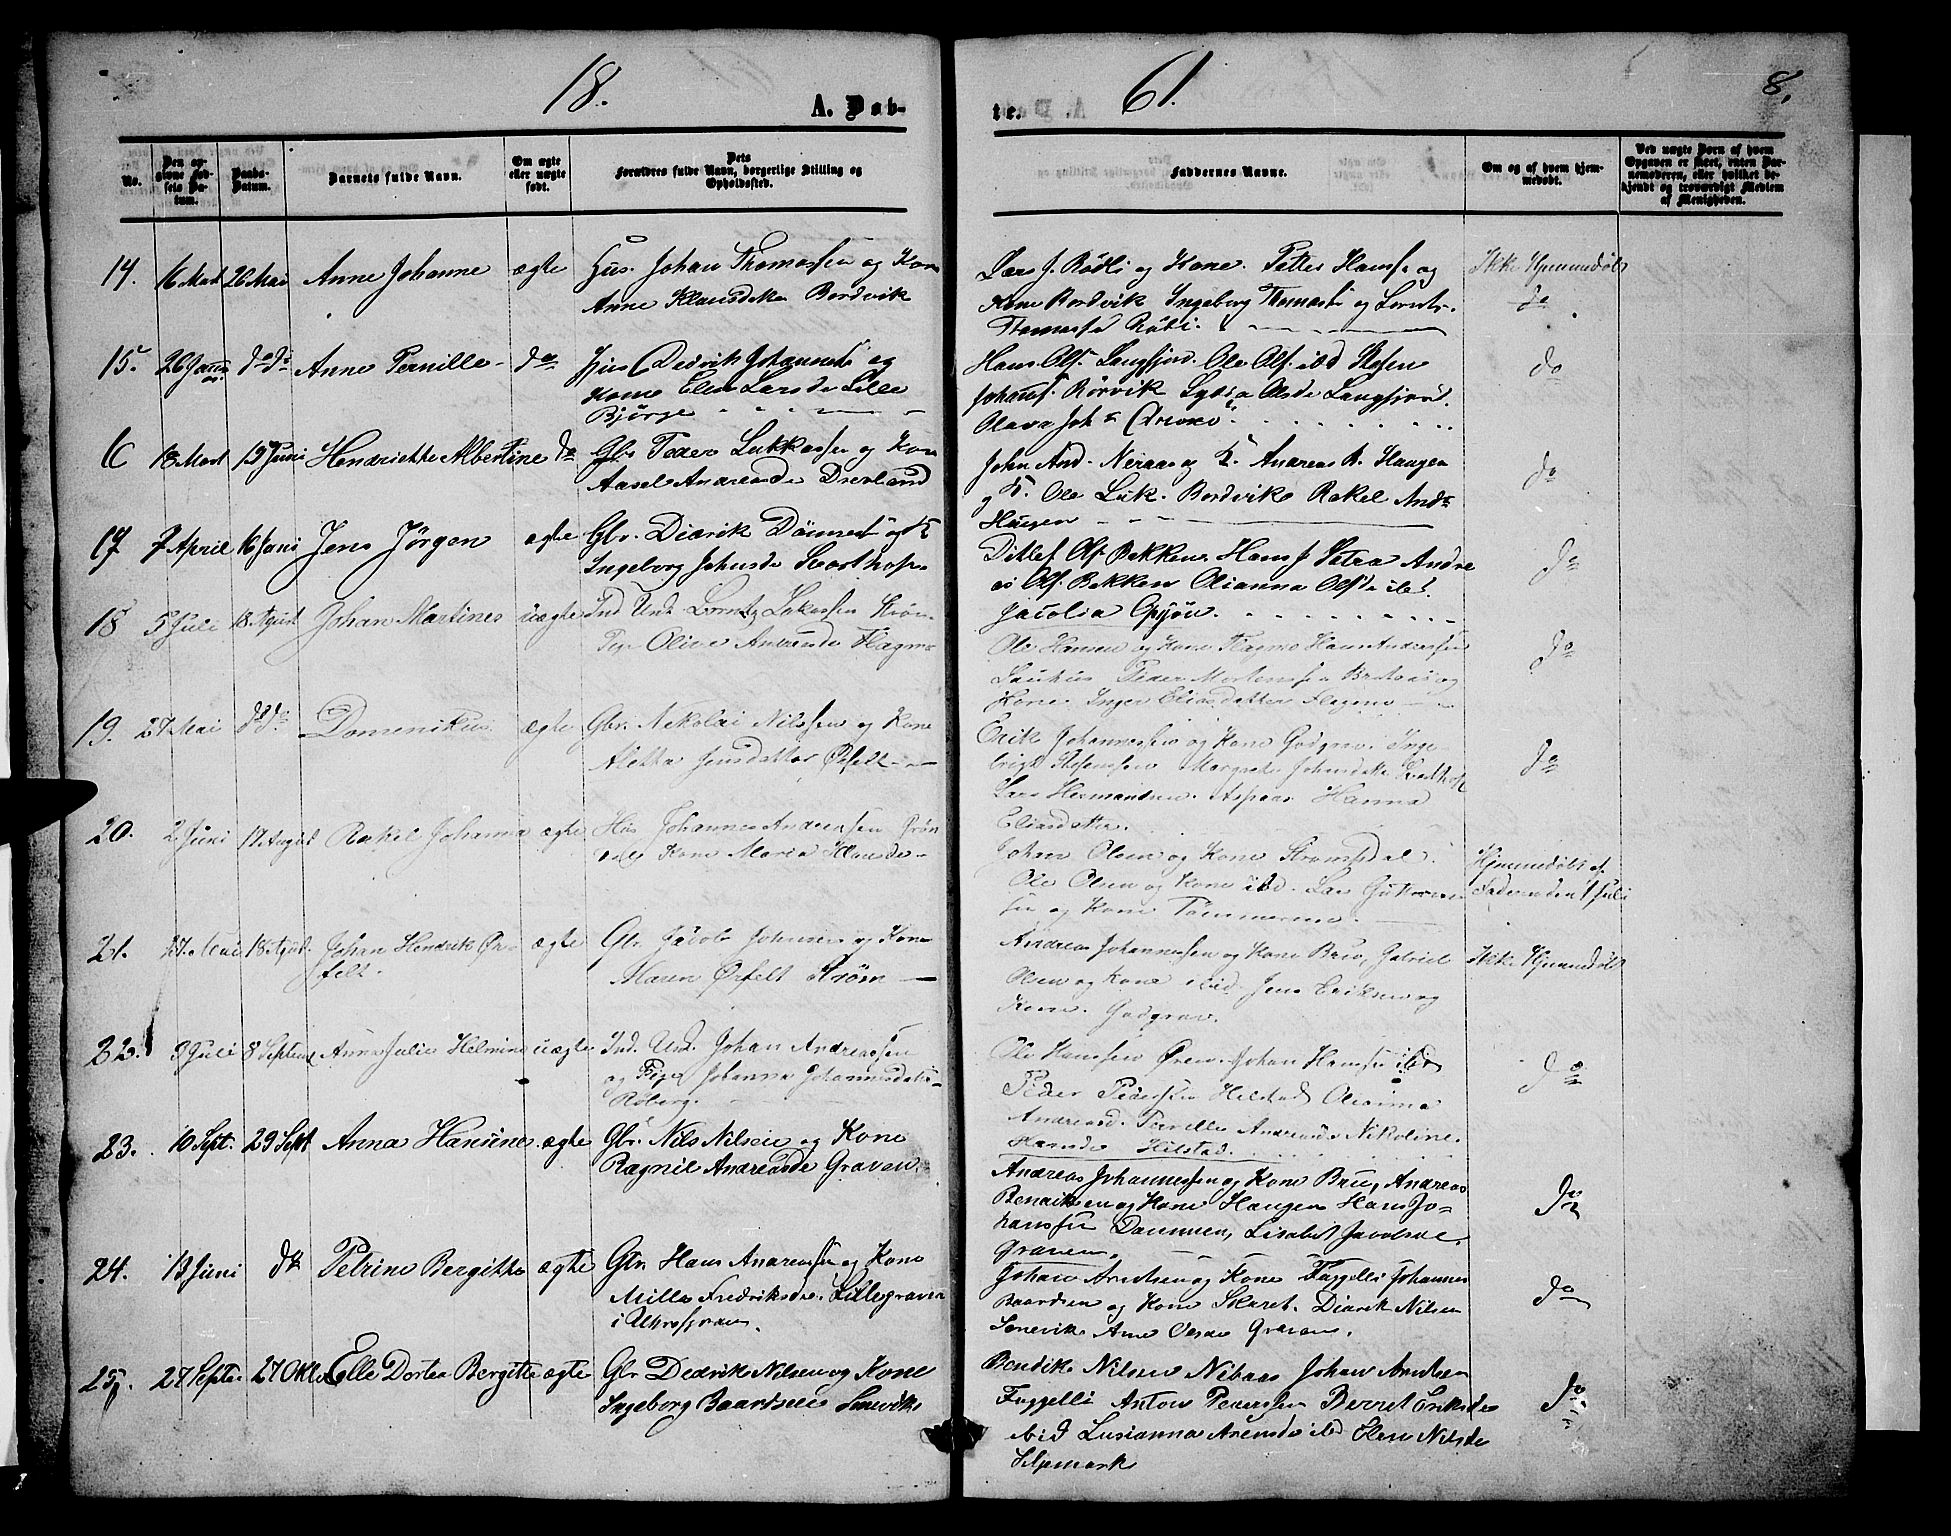 18. 61. 8.
A. Døb-
te.
No.
Den an-
givne Fød-
sels Da-
tum.
Daabs-
Datum.
Barnets fulde Navn.
Om ægte
eller uægte
født.
Dets
Forældres fulde Navn, borgerlige Stilling og
Opholdssted.
Faddernes Navne.
Om og af hvem hjem-
medøbt.
Ved uægte Børn af hvem
Opgaven er skeet, enten Bar-
nemoderen, eller hvilket be-
kjendt og troværdigt Medlem
af Menigheden.
14. 16 Mart 26 Mai Anne Johanne ægte Hus. Johan Thomassen og Kone
Anne Klausdatter Bordvik
Lars J. Rödli og Kone. Petter Hans. og
Kone Bordvik Ingeborg Thomasd. og Lorntz
Thomassen Rödli.
Ikke Hjemmedøbt
do
15. 26 do do Anne Pernille do Hus Didrik Johannes og
Kone Elen Larsd. Lille
Bjørge
Hans Ols. Langfjord. Ole Ols. ibd
Johans. Rörvik Olsd. Langfjord.
Olava Joh.
do
6 18 Mart 19 Juni Hendrikke Albertine do Gbr Peder Lukkassen og Kone
Aasel Andreasd.
John And. Neraas og K. Andreas A. Haugen
og K. Ole Luk. Bordvik Rakel Andr.
Haugen
do
17 7 April 16 Juni Jens Jörgen ægte Gbr. Didrik og K
Ingeborg Johnsd. Svarthop
Ditlef Ols. Bakken Hans J. Setra Andre
as Ols. Bakken Olianna Olsd. ibd.
Jacobia Opjön.
do
18 5 Juli 18 August Johan Martines uægte Ind. Und. Lorntz Lukassen Ström
Pige Olive Andreasd. Flagmo
Ole Hansen og Kone Flagmo Hans Andreassen
Peder Mortensen og
Kone. Inger Eliasdatter Flagmo
do
19. 27 Mai do do Domenikus ægte Gbr. Nekolai Nilssen og Kone
Aletta Jensdatter Ørfelt
Erik Johannessen og Kone Godgrav. Inge-
brigt Stefanssen Margrete Johnsdatter Svarthop
Lars Hermandsen. Aspaas. Hanna
Eliasdatter.
do
20. 2 Juni 17 August Rakel Johanna ægte Hus Johannes Andreassen
Kone Maria Hansd.
Johan Olsen og Kone Strömsdal.
Ole Olsen og Kone ibd. Lars
sen og Kone Tömmermo.
Hjemmedøbt af
Faderen den 1 Juli
21. 27. Mai 18 Agust. Johan Hendrik Ør-
felt. ægte Gbr. Jacob Johnsen og Kone
Maren Ørfelt Ström
Andreas Johannessen og Kone Bruo, Gabriel
Olsen og Kone ibid. Jens Eriksen og
Kone. Godgrav.
Ikke Hjemmedøbt
22. 3 Juli 8 Septemb Anna Julie Hilmine uægte Ind. Und. Johan Andreassen
og Pige Johanna Johannesdatter
Röberg.
Ole Hanssen Øren Johan Hanssen ibd
Peder Pederssen Hilstad Olianna
Andreasd. Pernille Andreasd. Nikoline
Hansd. Hilstad.
do
23. 10 Sept. 29 Sept Anna Hansine ægte Gbr. Nils Nilsen og Kone
Ragnil Andreasd. Graven
Andreas Johannessen og Kone Bruo, Andreas
Bendiksen og Kone Haugen Hans Jo-
hanssen Daumoen, Lisabet Jacobsd.
Graven.
do
24. 13 Juni do Petrine Bergitte ægte Gbr Hans Andreassen og Kone
Mille Fredriksd. Lillegraven
Johan Arntsen og Kone Fuggelli Johannes
Baardsen og Kone Skaret. Didrik Nilsen
Sonevik Ane Olsd. Graven.
do
25. 27 Septe 27 Okt Elle Dortea Bergitte ægte Gbr Dedrik Nilsen og Kone
Ingeborg Baardsen Sonevik
Bendik Nilsen Nibaas Johan Arntsen
Fuggelli Anton Pedersen Berret Eriksd.
ibid Lusianna Arensd. ibd Elen Nilsd.
Selpmark
do